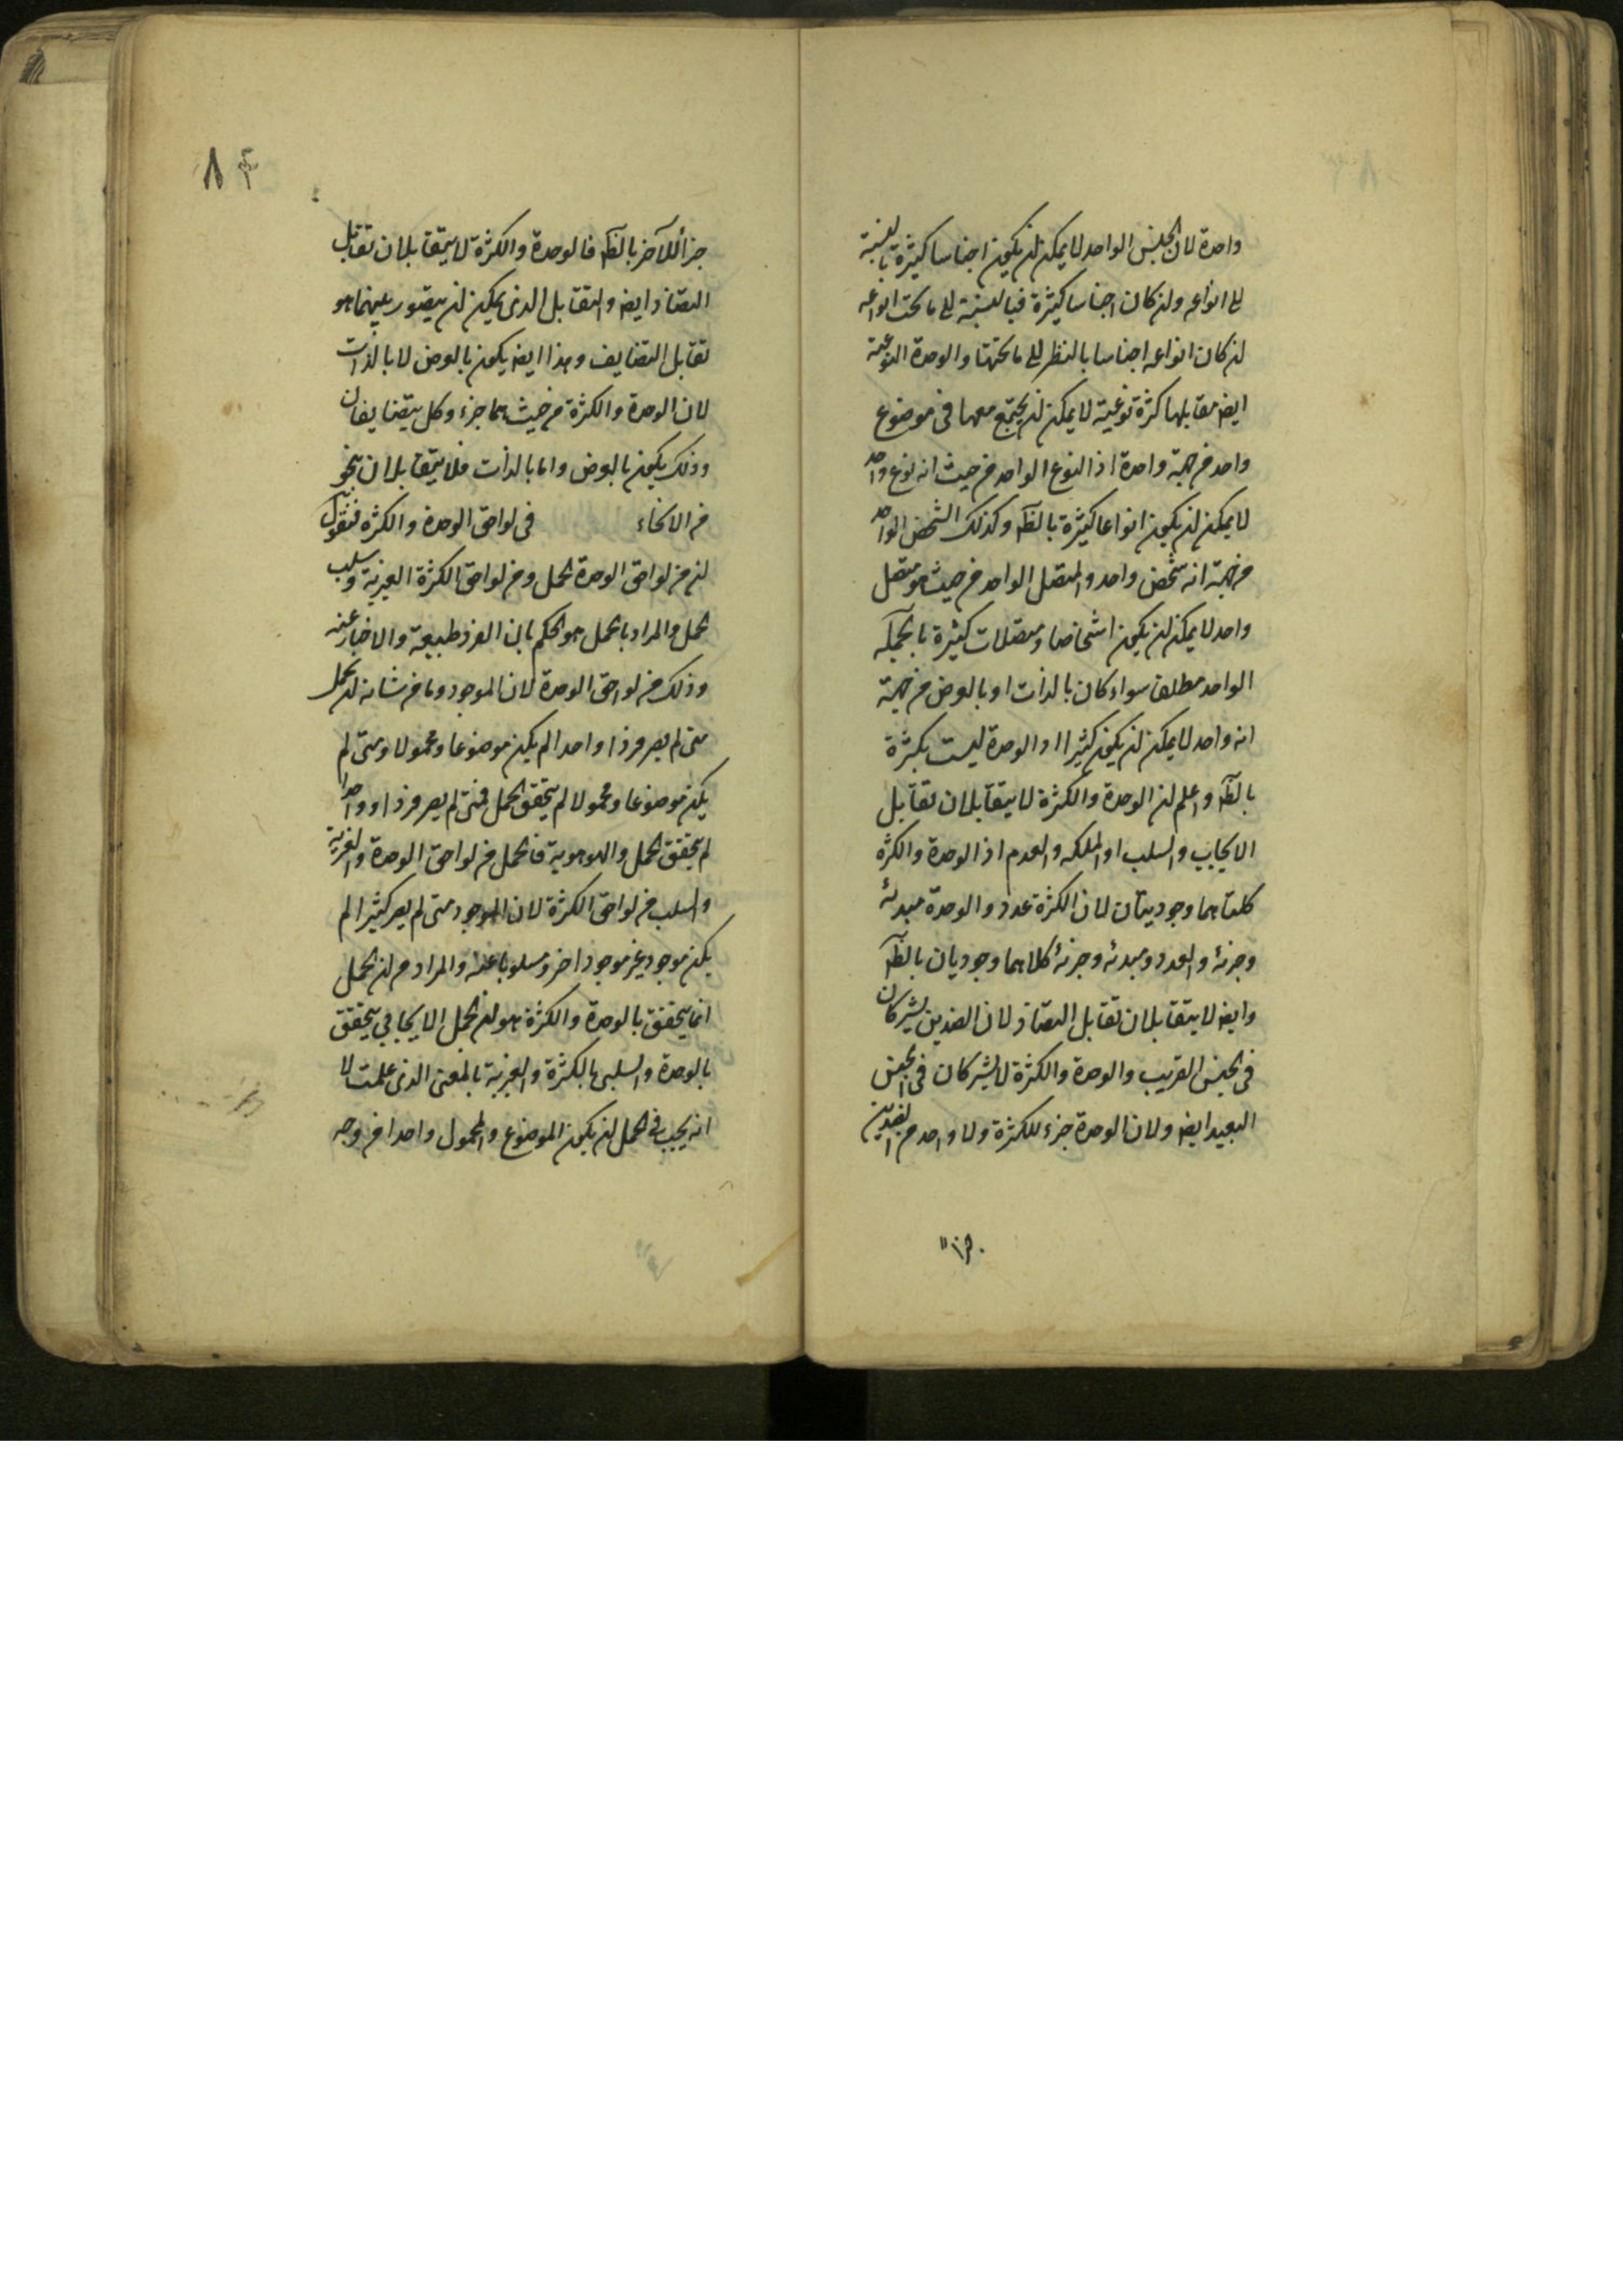 واحدة لان الجنس الواحد لا يمكن ان يكون اجناسا كثيرة بالنسبة
الى انواعه وان كان اجناسا كثيرة فبالنسبة الى ما تحت انواعه
ان كان انواعه اجناسا بالنظر الى ما تحتها والوحدة النوعية
ايضا مقابلها كثرة نوعية لا يمكن ان يجتمع معها فى موضوع
واحد من جهة واحدة اذ النوع الواحد من حيث انه نوع واحد
لا يمكن ان يكون انواعا كثيرة بالظه وكذلك الشخص الواحد
من جهة انه شخص واحد والمتصل الواحد من حيث هو متصل
واحد لا يمكن ان يكون اشخاصا ومتصلات كثيرة بالجملة
الواحد مطلقا سواء كان بالذات او بالعرض من جهة
انه واحد لا يمكن ان يكون كثيرا اذ الوحدة ليست بكثرة
بالظه واعلم ان الوحدة والكثرة لا يتقابلان تقابل
الايجاب والسلب او الملكه والعدم اذ الوحدة والكثره
كلتاهما وجوديتان لان الكثرة عدد والوحدة مبدئه
وجزئه والعدد ومبدئه وجزئه كلاهما وجوديان بالظه
وايضا لا يتقابلان تقابل التضاد لان الضدين يشتركان
فى الجنس القريب والوحدة والكثرة لا يشتركان فى الجنس
البعيد ايضا ولان الوحدة جزء للكثرة ولا واحد من الضدين
٨٤
جزأ للآخر بالظه فالوحدة والكثرة لا يتقابلان تقابل
التضاد ايضا والتقابل الذى يمكن ان يتصور بينهما هو
تقابل التضايف وهذا ايضا يكون بالعرض لا بالذات
لان الوحدة والكثرة من حيث هما جزء وكل يتضايفان
وذلك يكون بالعرض واما بالذات فلا يتقابلان بنحو
من الانحاء فى لواحق الوحدة والكثره فنقول
ان من لواحق الوحدة الحمل ومن لواحق الكثرة الغيرية وسلب
الحمل والمراد بالحمل هو الحكم بان الفرد طبيعة والاخبار عنه
وذلك من لواحق الوحدة لان الموجود وما من شانه ان يحمل
متى لم يصر فردا واحدا لم يكن موضوعا ومحمولا ومتى لم
يكن موضوعا ومحمولا لم يتحقق الحمل فمتى لم يصر فردا وواحدا
لم يتحقق الحمل والهوهوية فالحمل من لواحق الوحدة والغيرية
والسلب من لواحق الكثرة لان الموجود متى لم يصر كثيرا لم
يكن موجود غير موجود اخر ومسلوبا عنه والمراد من ان الحمل
انما يتحقق بالوحدة والكثرة هو ان الحمل الايجابي يتحقق
بالوحدة والسلبى بالكثرة والغيرية بالمعنى الذى علمت لا
انه يجب فى الحمل ان يكون الموضوع والمحمول واحدا من وجه